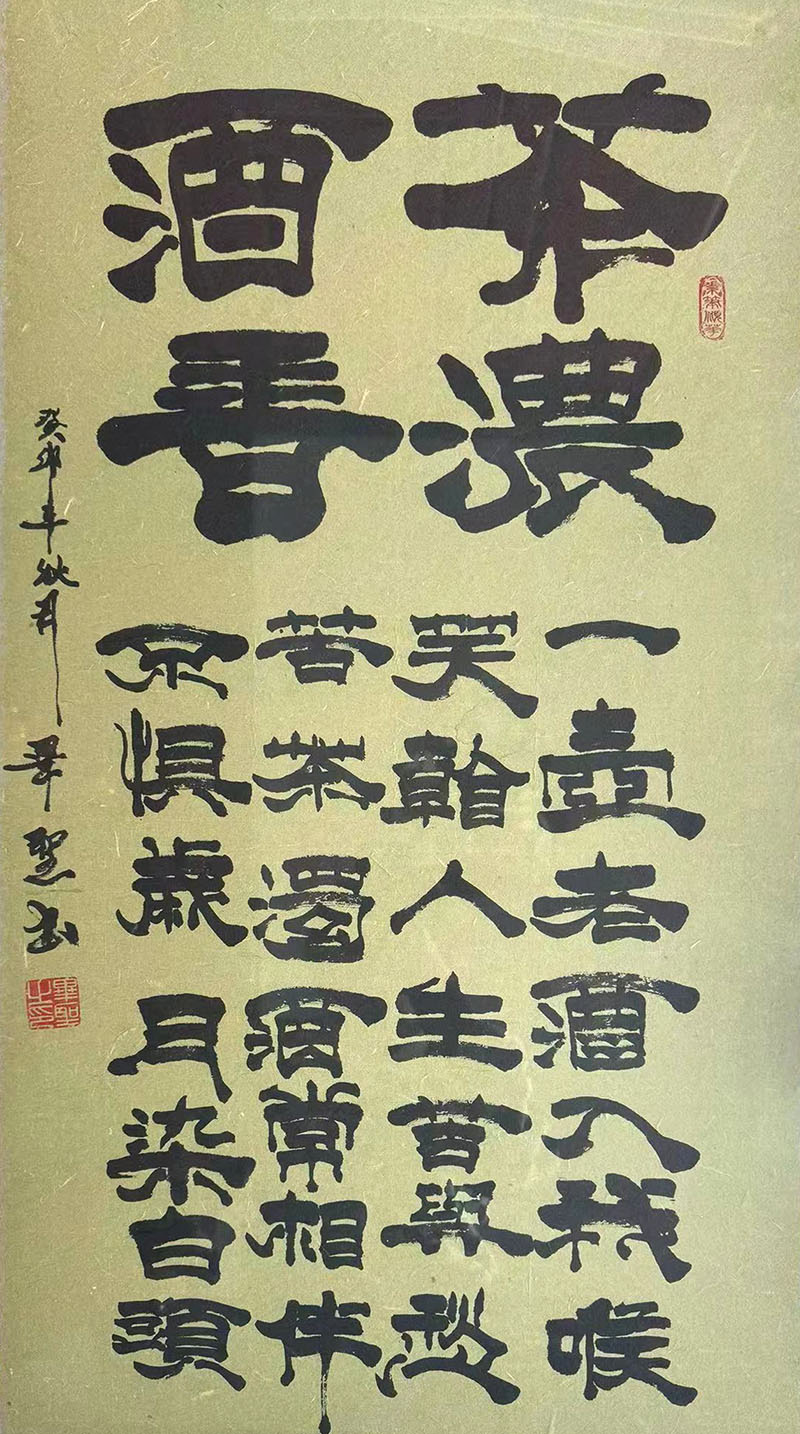 茶濃
酒香
一壺老酒入我喉
笑看人生苦與愁
苦茶濁酒常相伴
惧歲月染白頭
癸卯年秋月 畢聖書
畢聖之印